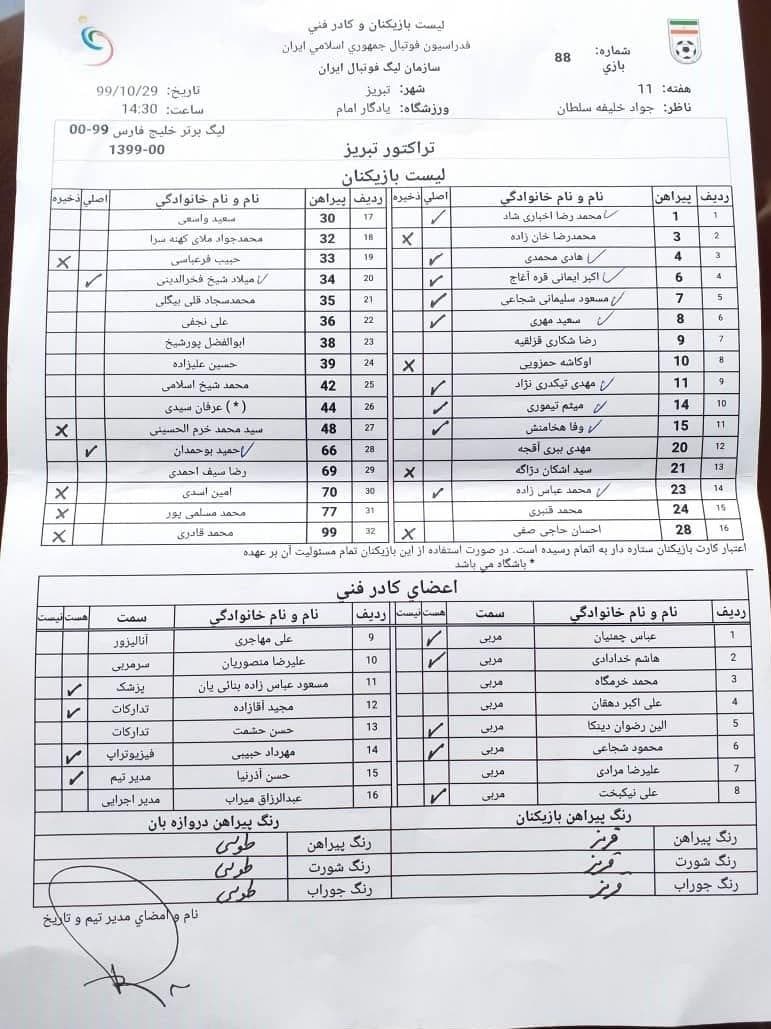 لیست بازیکنان و کادر فني
فدراسیون فوتبال جمهوري اسلامي ایران
سازمان لیگ فوتبال ایران
شماره بازي: 88
هفته: 11 شهر: تبریز تاریخ: 99/10/29
ناظر: جواد خلیفه سلطان ورزشگاه: یادگار امام ساعت: 14:30
لیگ برتر خلیج فارس 99-00
1399-00
تراکتور تبریز
لیست بازیکنان
ردیف پیراهن نام و نام خانوادگي اصلي ذخیره ردیف پیراهن نام و نام خانوادگي اصلي ذخیره
1 1 محمد رضا اخباری شاد ✓ 17 30 سعید واسعی
2 3 محمدرضا خان زاده × 18 32 محمدجواد ملای کهنه سرا
3 4 هادی محمدی ✓ 19 33 حبیب فرعباسی ×
4 6 اکبر ایمانی قره آغاج ✓ 20 34 میلاد شیخ فخرالدینی ✓
5 7 مسعود سلیمانی شجاعی ✓ 21 35 محمدسجاد قلی بیگلی
6 8 سعید مهری ✓ 22 36 علی نجفی
7 9 رضا شکاری قزلقیه 23 38 ابوالفضل پورشیخ
8 10 اوکاشه حمزویی × 24 39 حسین علیزاده
9 11 مهدی تیکدری نژاد ✓ 25 42 محمد شیخ اسلامی
10 14 میثم تیموری ✓ 26 44 (*) عرفان سیدی
11 15 وفا هخامنش ✓ 27 48 سید محمد خرم الحسینی ×
12 20 مهدی ببری آقجه 28 66 حمید بوحمدان ✓
13 21 سید اشکان دژاگه × 29 69 رضا سیف احمدی
14 23 محمد عباس زاده ✓ 30 70 امین اسدی ×
15 24 محمد قنبری 31 77 محمد مسلمی پور ×
16 28 احسان حاجی صفی × 32 99 محمد قادری ×
اعتبار کارت بازیکنان ستاره دار به اتمام رسیده است. در صورت استفاده از این بازیکنان تمام مسئولیت آن بر عهده
* باشگاه می باشد
اعضاي کادر فني
ردیف نام و نام خانوادگي سمت هست نیست ردیف نام و نام خانوادگي سمت هست نیست
1 عباس چمنیان مربی ✓ 9 علی مهاجری آنالیزور
2 هاشم خدادادی مربی ✓ 10 علیرضا منصوریان سرمربی
3 محمد خرمگاه مربی 11 مسعود عباس زاده بنائی یان پزشک ✓
4 علی اکبر دهقان مربی 12 مجید آقازاده تدارکات ✓
5 الین رضوان دینکا مربی ✓ 13 حسن حشمت تدارکات
6 محمود شجاعی مربی ✓ 14 مهرداد حبیبی فیزیوتراپ ✓
7 علیرضا مرادی مربی 15 حسن آذرنیا مدیر تیم ✓
8 علی نیکبخت مربی ✓ 16 عبدالرزاق میراب مدیر اجرایی
رنگ پیراهن بازیکنان رنگ پیراهن دروازه بان
رنگ پیراهن قرمز رنگ پیراهن طوسی
رنگ شورت قرمز رنگ شورت طوسی
رنگ جوراب قرمز رنگ جوراب طوسی
نام و امضاي مدیر تیم و تاریخ